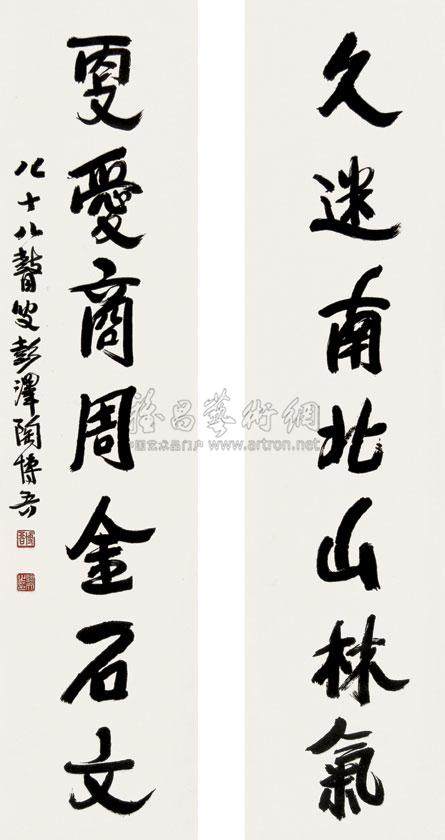 久迷南北山林氣
更愛商周金石文
八十八瞽叟彭澤陶博吾
雅昌藝術網
中国艺术品门户 www.artron.net